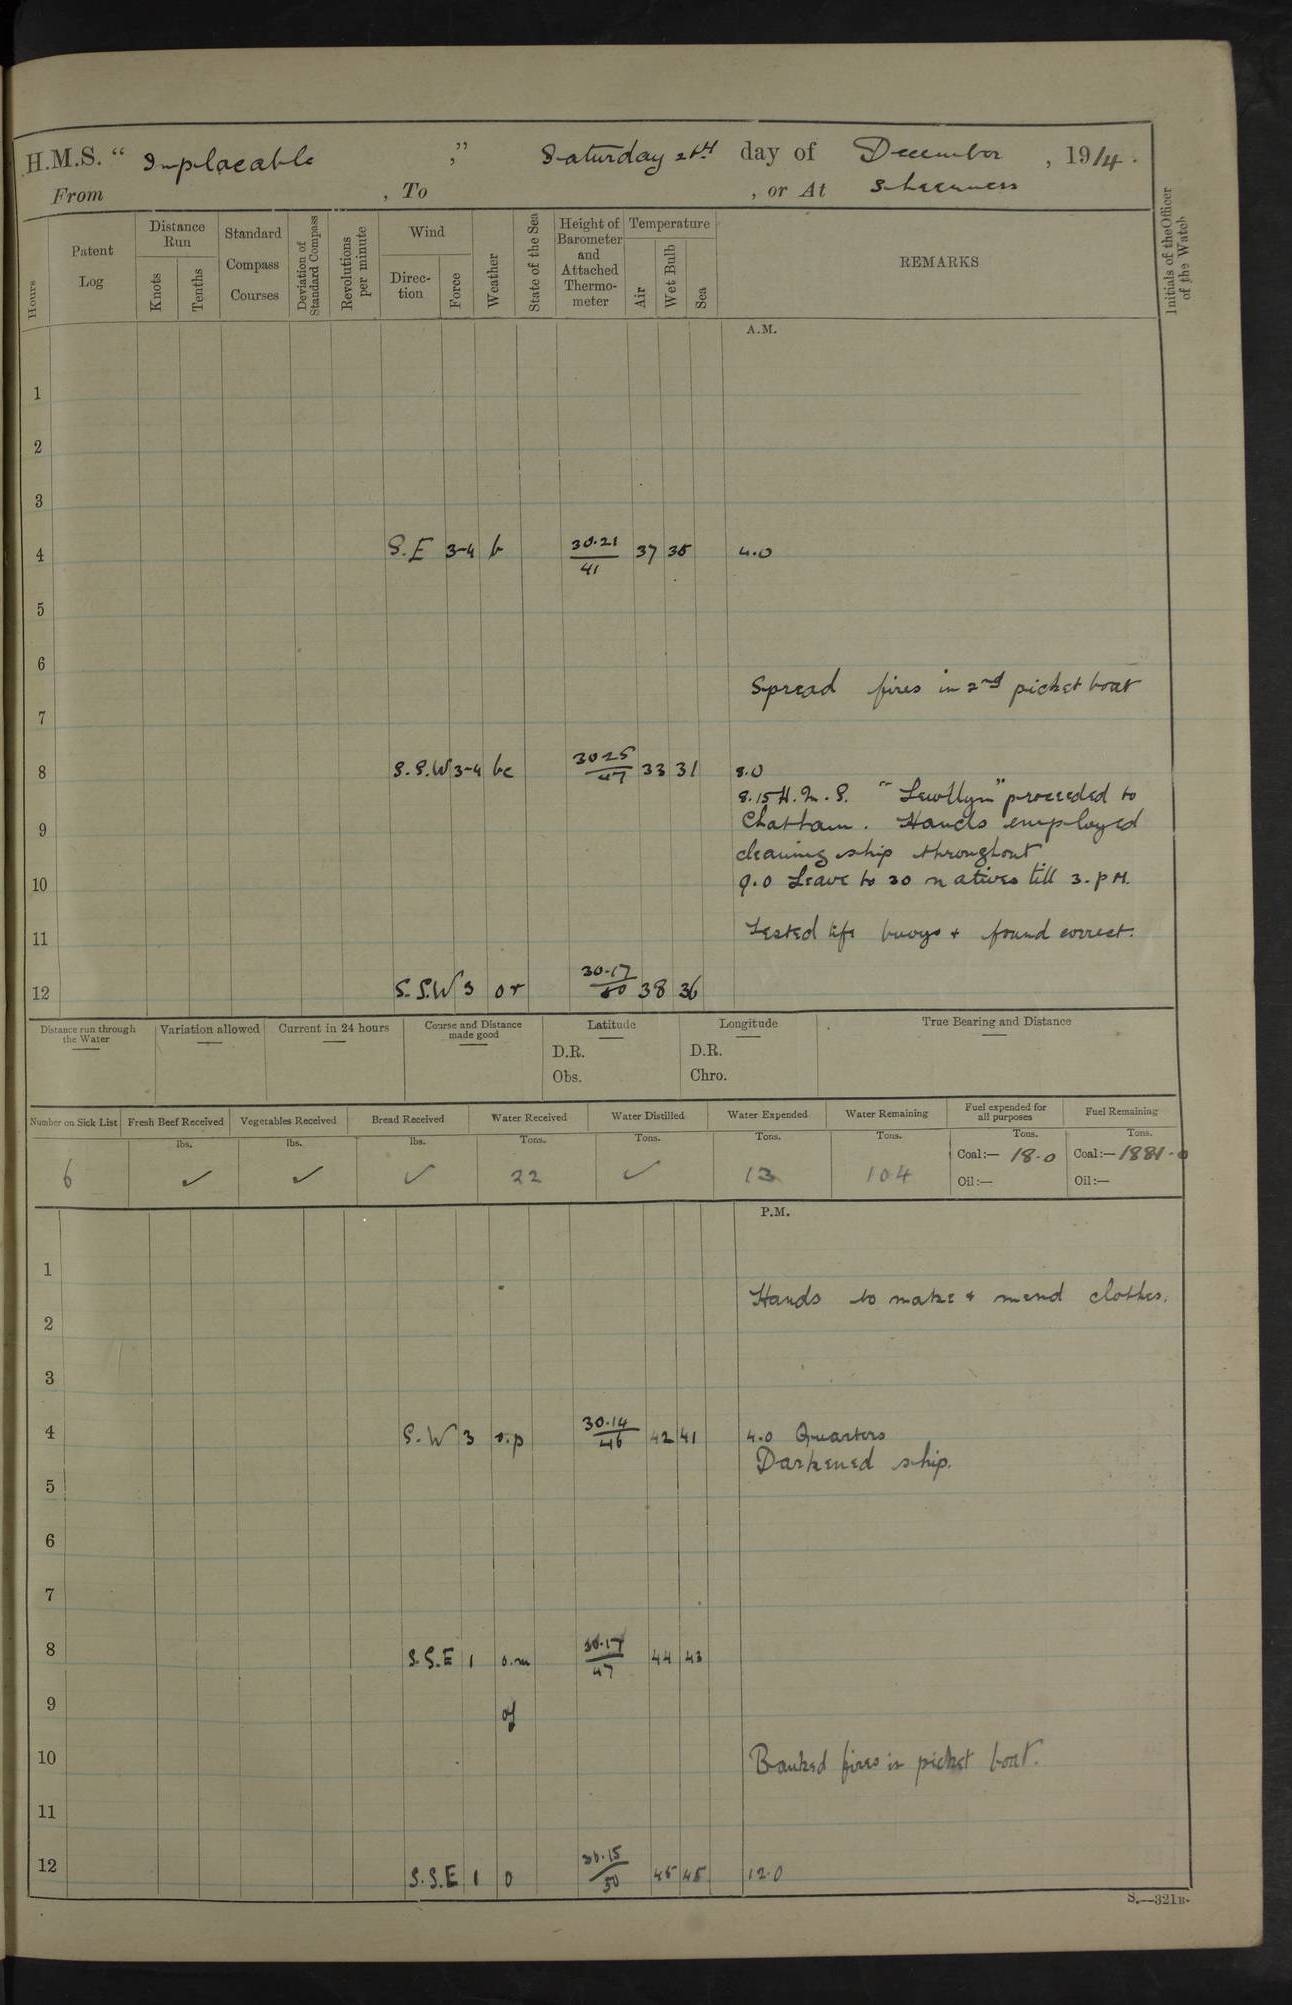 H.M.S. " Implacable ," Saturday day of December , 1914.
From , To , or At Sheerness
Hours
Patent Log
Distance Run
Knots
Tenths
Standard Compass Courses
Deviation of Standard Compass
Revolutions per minute
Wind
Direction
Force
Weather
State of the Sea
Height of Barometer and Attached Thermometer
Temperature
Air
Wet Bulb
Sea
REMARKS
Initials of the Officer of the Watch
A.M.
1
2
3
4 S.E 3-4 b 30.21/41 37 35 4.0
5
6
Spread fires in 2nd picket boat
7
8 S.S.W 3-4 bc 30.25/47 33 31 8.0
8.15 H.M.S. "Lewllyn" proceeded to
9 Chatham. Hands employed
cleaning ship throughout
10 9.0 Leave to 30 natives till 3. P.M.
11 Tested life buoys + found correct.
12 S.S.W 3 or 30.17/50 38 36
Distance run through the Water
Variation allowed
Current in 24 hours
Course and Distance made good
Latitude
D.R.
Obs.
Longitude
D.R.
Chro.
True Bearing and Distance
Number on Sick List
6
Fresh Beef Received
lbs.
✓
Vegetables Received
lbs.
✓
Bread Received
lbs.
✓
Water Received
Tons.
22
Water Distilled
Tons.
✓
Water Expended
Tons.
13
Water Remaining
Tons.
104
Fuel expended for all purposes
Tons.
Coal:— 18.0
Oil:—
Fuel Remaining
Tons.
Coal:— 1881.0
Oil:—
P.M.
1
Hands to make + mend clothes.
2
3
4 S.W 3 o.p 30.14/46 42 41 4.0 Quarters
Darkened ship.
5
6
7
8 S.S.E 1 o.m 30.17/47 44 43
9 of
10 Banked fires in picket boat.
11
12 S.S.E 1 o 30.15/50 45 45 12.0
S.—321B.